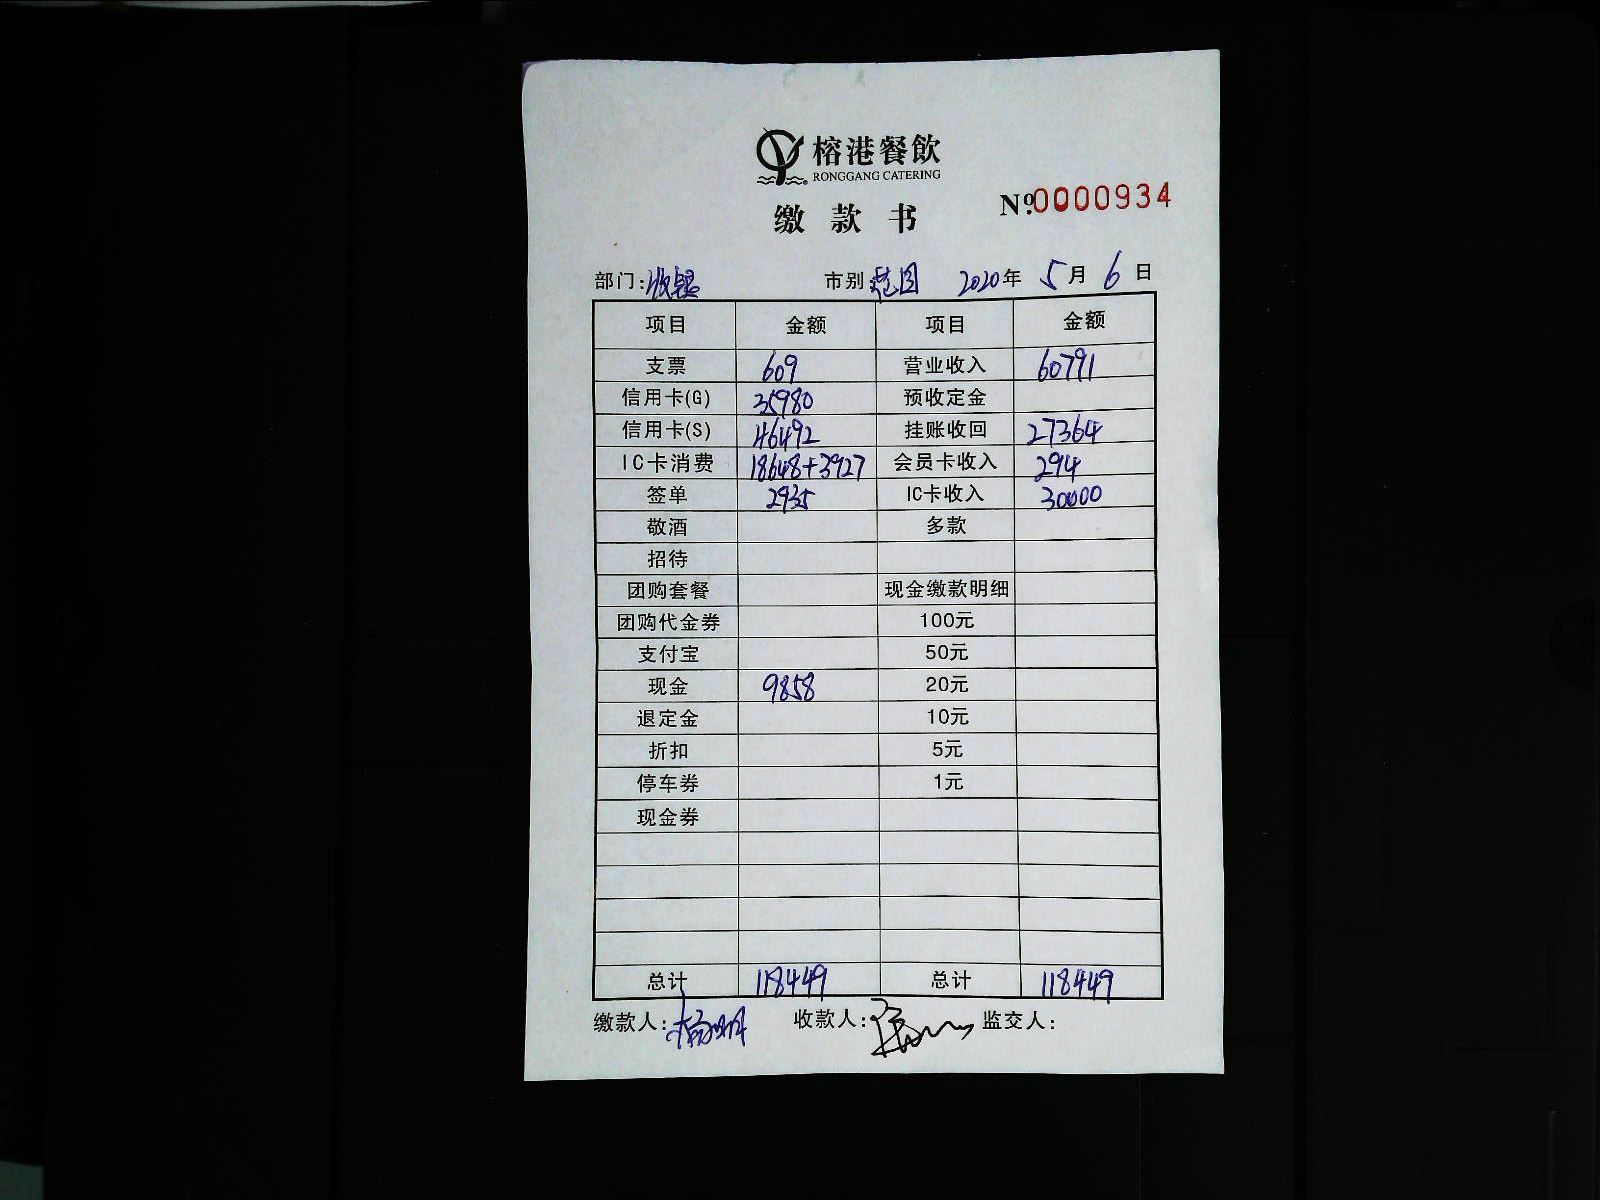 榕港餐飲
RONGGANG CATERING
№.0000934
缴款书
部门:收银 市别:范围 2020年 5月 6日
项目 金额 项目 金额
支票 609 营业收入 60791
信用卡(G) 35980 预收定金
信用卡(S) 46492 挂账收回 27364
IC卡消费 18648+3927 会员卡收入 294
签单 2935 IC卡收入 30000
敬酒 多款
招待
团购套餐 现金缴款明细
团购代金券 100元
支付宝 50元
现金 9858 20元
退定金 10元
折扣 5元
停车券 1元
现金券
总计 118449 总计 118449
缴款人: 收款人: 监交人: